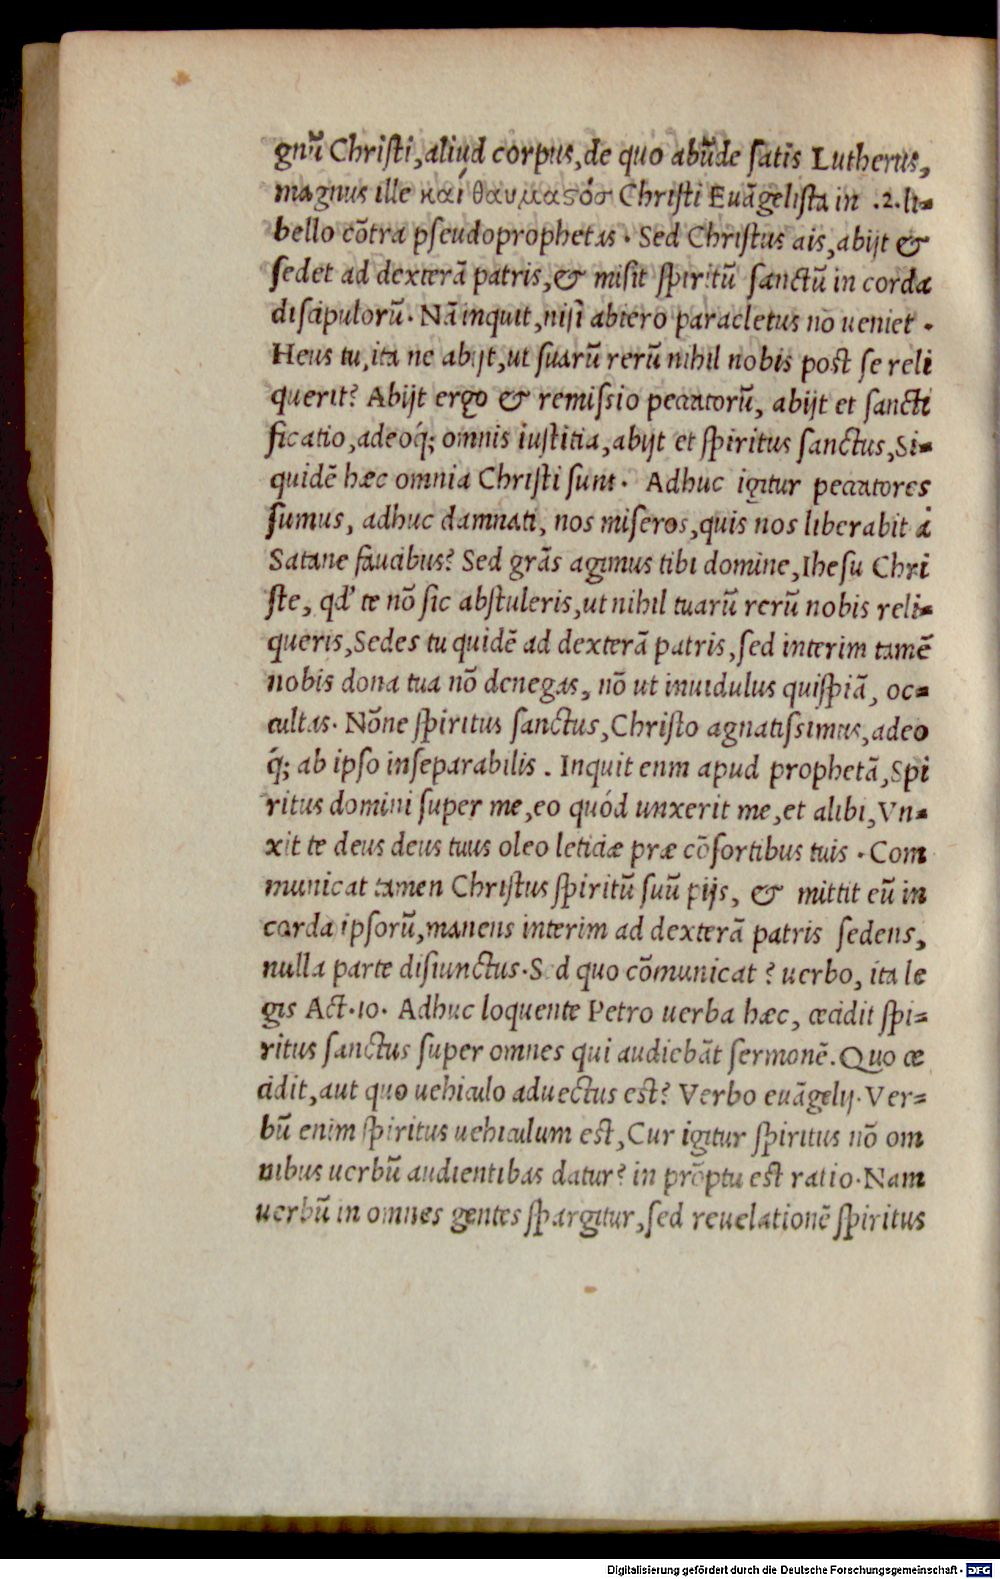 gnũ Christi, aliud corpus, de quo abũde satis Lutherus,
magnus ille καί θαυμαςόσ Christi Euãgelista in .2. li=
bello cõtra pseudoprophetas . Sed Christus ais, abijt &
sedet ad dexterã patris, & misit spiritũ sanctũ in corda
discipulorũ. Nã inquit, nisi abiero paracletus nõ ueniet .
Heus tu, ita ne abijt, ut suarũ rerũ nihil nobis post se reli
querit? Abijt ergo & remissio peccatorũ, abijt et sancti
ficatio, adeoq́; omnis iustitia, abijt et spiritus sanctus, Si=
quidẽ hæc omnia Christi sunt . Adhuc igitur peccatores
sumus, adhuc damnati, nos miseros, quis nos liberabit á
Satane faucibus? Sed grãs agimus tibi domine, Ihesu Chri
ste, qď te nõ sic abstuleris, ut nihil tuarũ rerũ nobis reli=
queris, Sedes tu quidẽ ad dexterã patris, sed interim tamẽ
nobis dona tua nõ denegas, nõ ut inuidulus quispiã, oc=
cultas. Nõne spiritus sanctus, Christo agnatissimus, adeo
q́; ab ipso inseparabilis . Inquit enm apud prophetã, Spi
ritus domini super me, eo quód unxerit me, et alibi, Vn=
xit te deus deus tuus oleo leticiæ præ cõsortibus tuis . Com
municat tamen Christus spiritũ suũ pijs, & mittit eũ in
corda ipsorũ, manens interim ad dexterã patris sedens,
nulla parte disiunctus. Sed quo cõmunicat? uerbo, ita le
gis Act. 10. Adhuc loquente Petro uerba hæc, cecidit spi=
ritus sanctus super omnes qui audiebãt sermonẽ. Quo ce
cidit, aut quo uehiculo aduectus est? Verbo euãgelij. Ver=
bũ enim spiritus uehiculum est, Cur igitur spiritus nõ om
nibus uerbũ audientibas datur? in prõptu est ratio. Nam
uerbũ in omnes gentes spargitur, sed reuelationẽ spiritus
Digitalisierung gefördert durch die Deutsche Forschungsgemeinschaft - DFG